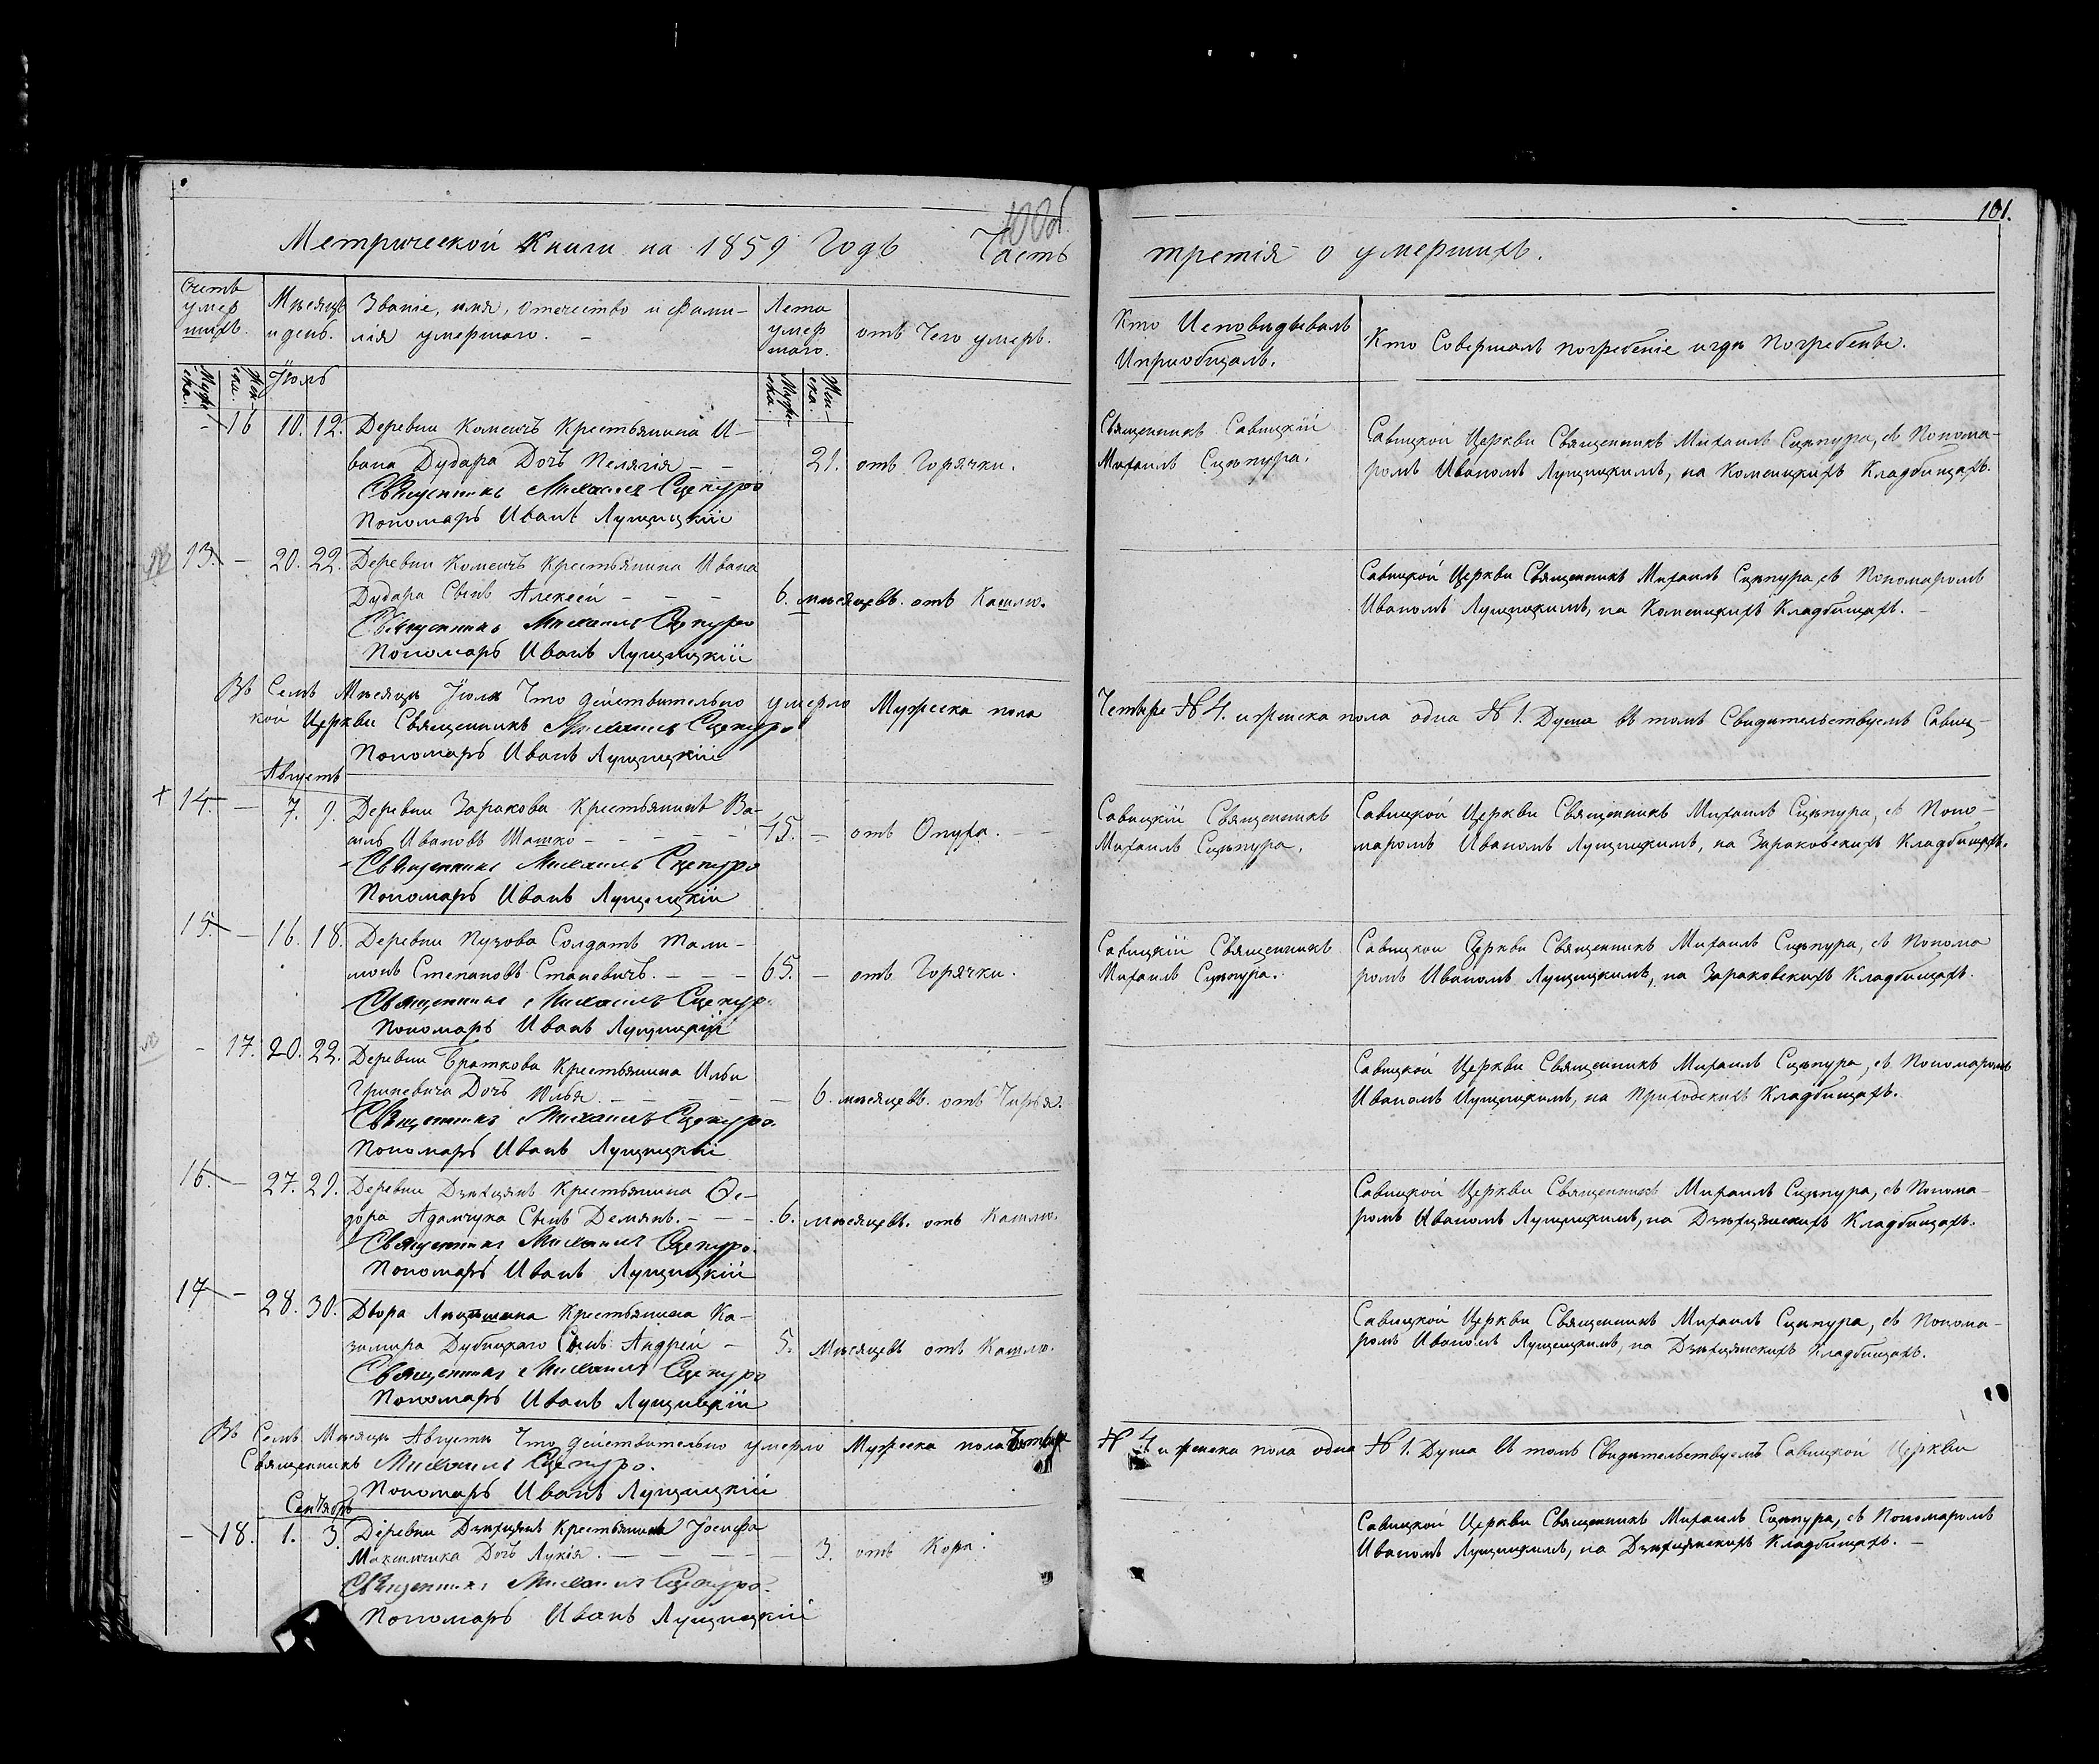 100об.
101.
Метрической Книги на 1859 Годъ Часть
третія о умершихъ.
Счетъ умер шихъ.
Мѣсяцъ и день.
Званіе, имя, отечество и фами-
лія умершаго. –
Лета умер шаго.
отъ Чего умеръ.
Кто Исповидывалъ
Ипріобщалъ.
Кто Совершалъ погребеніе игдѣ Погребенъ.
Муже ска.
Жен- ска.
Іюль
Муже ска.
Жен- ска.
- 16 10. 12. Деревни Коменчъ Крестьянина И-
вана Дудара Дочъ Пелягія – – 21. отъ Горячки.
Священникъ Михаилъ Сцепуро
Пономаръ Иванъ Лущицкій
Священникъ Савицкій
Михаилъ Сцѣпура.
Савицкой Церкви Священникъ Михаилъ Сцѣпура, съ Понома-
ромъ Иваномъ Лущицкимъ, на Коменцкихъ Кладбищахъ.
13. – 20. 22. Деревни Коменчъ Крестьянина Ивана
Дудара Сынъ Алексѣй – – – 6. мѣсяцевъ. отъ Кашлю.
Священникъ Михаилъ Сцепуро
Пономаръ Иванъ Лущицкій
Савицкой Церкви Священникъ Михаилъ Сцѣпура, съ Пономаромъ
Иваномъ Лущицкимъ, на Коменцкихъ Кладбищахъ. –
Въ Семъ Мѣсяцѣ Іюлѣ Что дѣйствительно умерло Мужеска пола
Четыре № 4. иженска пола одна № 1. Душа въ томъ Свидительствуемъ Савиц-
кой Церкви Священникъ Михаилъ Сцепуро
Пономаръ Иванъ Лущицкій
Августъ
+ 14. – 7. 9. Деревни Заракова Крестьянинъ Ва-
силь Ивановъ Шашко – – – – – 45. – отъ Опуха. – –
Священникъ Михаилъ Сцепуро
Пономаръ Иванъ Лущицкій
Савицкій Священникъ
Михаилъ Сцѣпура.
Савицкой Церкви Священникъ Михаилъ Сцѣпура, съ Поно-
маромъ Иваномъ Лущицкимъ, на Зараковскихъ Кладбищахъ.
15. – 16. 18. Деревни Пузова Солдатъ Фали-
монъ Степановъ Станевичъ. – – – 65. – отъ Горячки.
Священникъ Михаилъ Сцепуро
Пономаръ Иванъ Лущицкій
Савицкій Священникъ
Михаилъ Сцѣпура.
Савицкой Церкви Священникъ Михаилъ Сцѣпура, съ Понома
ромъ Иваномъ Лущицкимъ, на Зараковскихъ Кладбищахъ.
- 17. 20. 22. Деревни Браткова Крестьянина Ильи
Гриневича Дочъ Юлья. – – – – – 6. мѣсяцевъ. отъ Чирья.
Священникъ Михаилъ Сцепуро.
Пономаръ Иванъ Лущицкій
Савицкой Церкви Священникъ Михаилъ Сцѣпура, съ Пономаромъ
Иваномъ Лущицкимъ, на Приходскихъ Кладбищахъ.
16. – 27. 29. Деревни Дзѣхцянъ Крестьянина Ѳе-
дора Адамчука Сынъ Демянъ. – – – 6. мѣсяцевъ. отъ Кашлю.
Священникъ Михаилъ Сцепуро.
Пономаръ Иванъ Лущицкій
Савицкой Церкви Священникъ Михаилъ Сцѣпура, съ Понома-
ромъ Иваномъ Лущицкимъ, на Дзѣхцянскихъ Кладбищахъ.
17 – 28. 30. Двора Крестьянина Ка-
зимира Дубицкаго Сынъ Андрей – 5. Мѣсяцевъ отъ Кашлю.
Священникъ Михаилъ Сцепуро
Пономаръ Иванъ Лущицкій
Савицкой Церкви Священникъ Михаилъ Сцѣпура, съ Понома-
ромъ Иваномъ Лущицкимъ, на Дзѣхцянскихъ Кладбищахъ.
Въ Семъ Мѣсяцѣ Августѣ Что дѣйствительно умерло Мужеска пола Четыре
№ 4 и женска пола одна № 1. Душа въ томъ Свидительствуемъ Савицкой Церкви
Священникъ Михаилъ Сцепуро.
Пономаръ Иванъ Лущицкій
Сентябрь
- 18. 1. 3. Деревни Дзѣхцянъ Крестьянина Іосифа
Максимчика Дочъ Лукія. – – – – 3. отъ Кори.
Священникъ Михаилъ Сцепуро.
Пономаръ Иванъ Лущицкій
Савицкой Церкви Священникъ Михаилъ Сцѣпура, съ Пономаромъ
Иваномъ Лущицкимъ, на Дзѣхцянскихъ Кладбищахъ. –